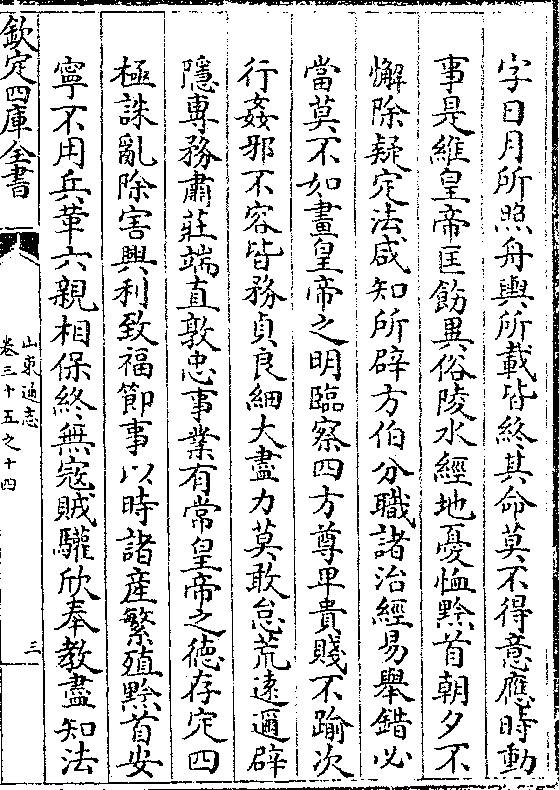 字日月所照舟輿所載皆終其命莫不得意應時動
事是維皇帝匡飭異俗陵水經地憂恤黔首朝夕不
懈除疑定法咸知所辟方伯分職諸治經易舉錯必
當莫不如畫皇帝之明臨察四方尊卑貴賤不踰次
行姦邪不容皆務貞良細大盡力莫敢怠荒遠邇辟
隱專務肅莊端直敦忠事業有常皇帝之徳存定四
極誅亂除害興利致福節事以時諸産繁殖黔首安
寧不用兵革六親相保終無寇賊驩欣奉教盡知法
欽定四庫全書
山東通志
卷三十五之十四
三